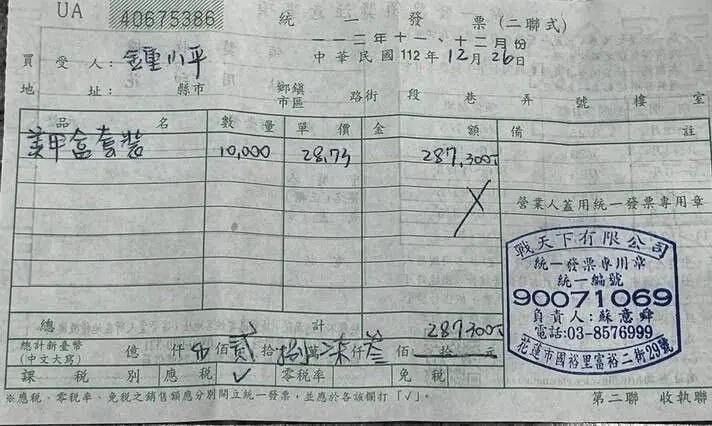 UA 40675386
統一發票(二聯式)
一一二年十一、十二月份
買受人：鍾小平
中華民國112年12月26日
地址： 縣市 鄉鎮市區 路街 段 巷 弄 號 樓 室
品名 數量 單價 金額 備註
美甲盒套裝 10,000 28.73 287,300
營業人蓋用統一發票專用章
戰天下有限公司
統一發票專用章
統一編號
90071069
負責人：蘇意舜
電話:03-8576999
花蓮市國裕里富裕二街29號
總計 287300
總計新臺幣(中文大寫) 億 仟 佰 貳 拾 捌 萬 柒 仟 叁 佰 拾 元
課稅別 應稅 ✓ 零稅率 免稅
※應稅、零稅率、免稅之銷售額應分別開立統一發票，並應於各該欄打「✓」。
第二聯 收執聯